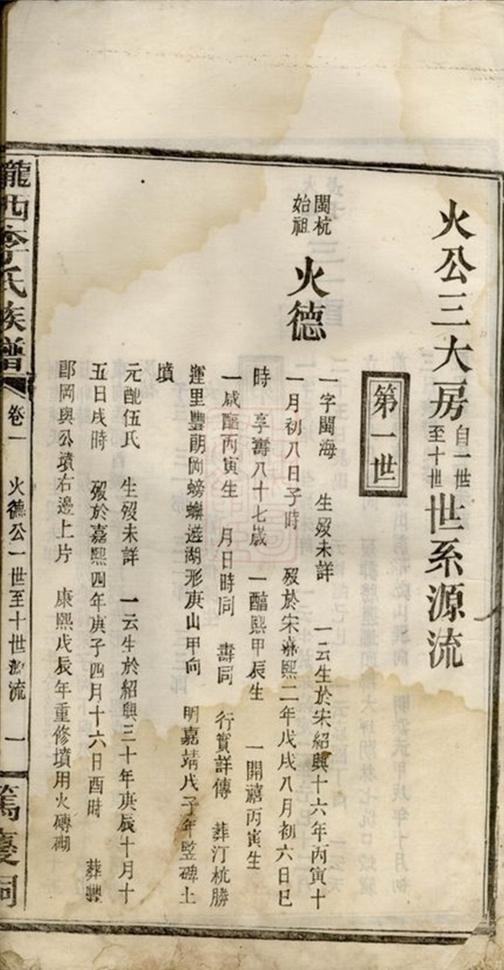 火公三大房自一世至十世世系源流
第一世
閩杭始祖 火德
一字閩海 生歿未詳 一云生於宋紹興十六年丙寅十
一月初八日子時 歿於宋嘉熙二年戊戌八月初六日巳
時 享壽八十七歲 一醧熙甲辰生 一開禧丙寅生
一咸醧丙寅生 月日時同 壽同 行實詳傳 葬汀杭勝
運里豐朗岡螃蠏遊湖形庚山甲向 明嘉靖戊子年竪碑土
墳
元配伍氏 生歿未詳 一云生於紹興三十年庚辰十月十
五日戌時 歿於嘉熙四年庚子四月十六日酉時 葬豐
郎岡與公墳右邊上片 康熙戊辰年重修墳用火磚砌
隴西李氏族譜 卷一 火德公一世至十世源流 一 篤慶祠